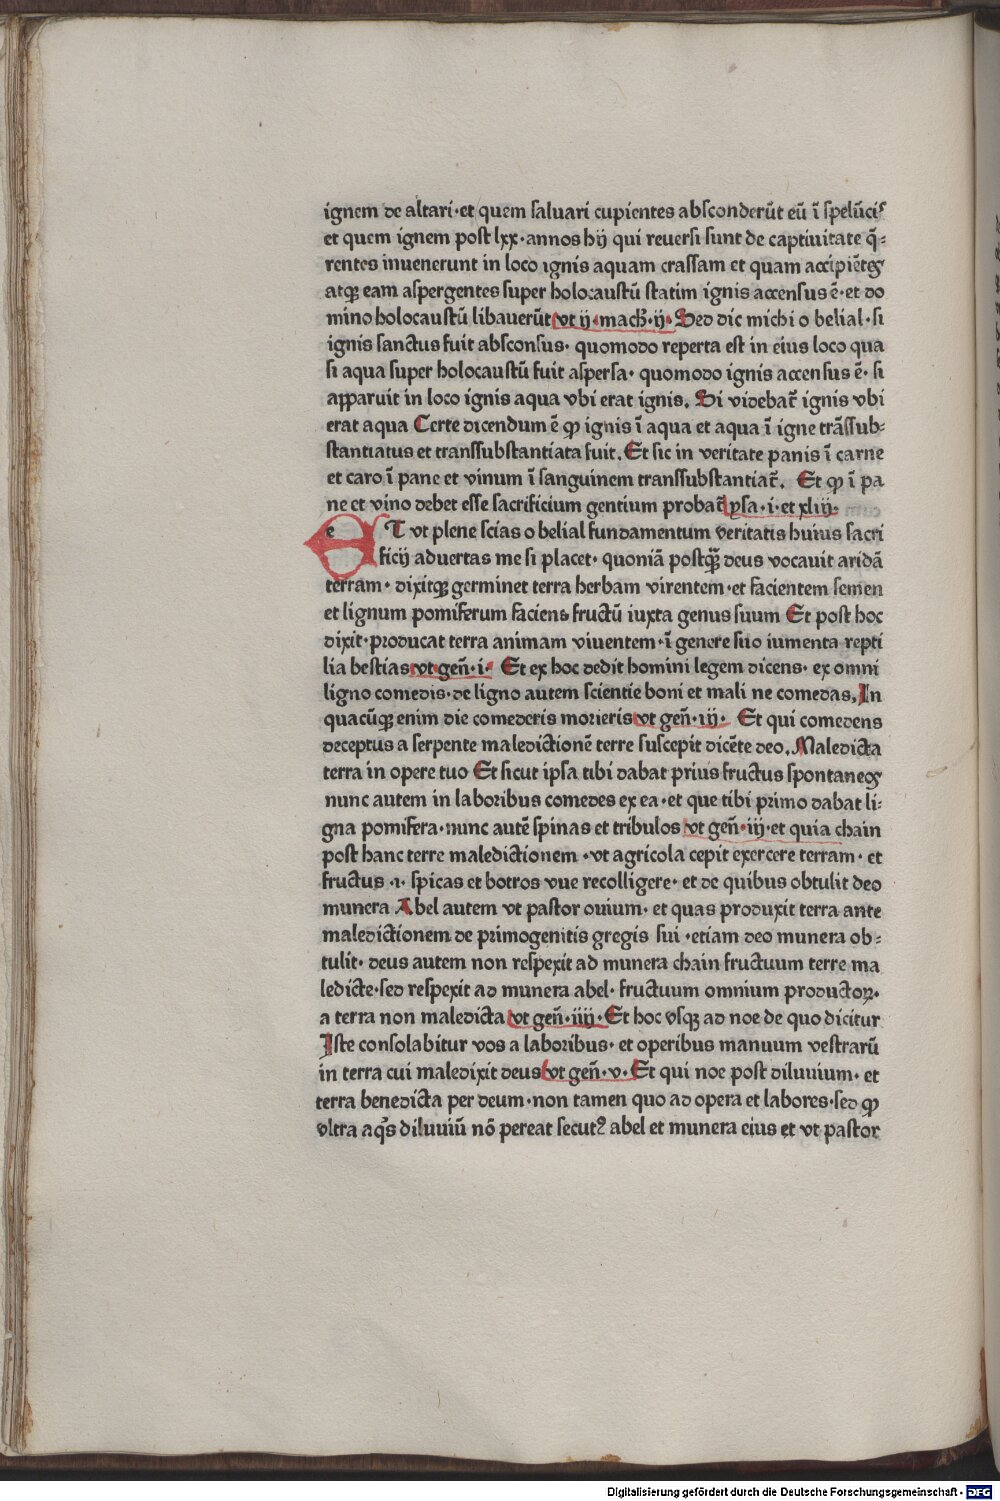 ignem de altari·et quem saluari cupientes absconderūt eū ī spelūcis
et quem ignem post lxx·annos hij qui reuersi sunt de captiuitate q̄=
rentes inuenerunt in loco ignis aquam crassam et quam accipiētes
atqꝫ eam aspergentes super holocaustū statim ignis accensus ē·et do
mino holocaustū libauerūt vt ij·mach̄·ij· Sed dic michi o belial·si
ignis sanctus fuit absconsus· quomodo reperta est in eius loco qua
si aqua super holocaustū fuit aspersa· quomodo ignis accensus ē· si
apparuit in loco ignis aqua vbi erat ignis. Si videbat̄ ignis vbi
erat aqua Certe dicendum ē ꝙ ignis ī aqua et aqua ī igne trāssub=
stantiatus et transsubstantiata fuit. Et sic in veritate panis ī carne
et caro ī pane et vinum ī sanguinem transsubstantiat̄. Et ꝙ ī pa
ne et vino debet esse sacrificium gentium probat̄ ysa·i·et xliij·
e T vt plene scias o belial fundamentum veritatis huius sacri
ficij aduertas me si placet· quoniā postqꝫ̄ deus vocauit aridā
terram· dixitqꝫ germinet terra herbam virentem·et facientem semen
et lignum pomiferum faciens fructū iuxta genus suum Et post hoc
dixit·producat terra animam viuentem·ī genere suo iumenta repti
lia bestias vt gen̄·i· Et ex hoc dedit homini legem dicens· ex omni
ligno comedis·de ligno autem scientie boni et mali ne comedas. In
quacūqꝫ enim die comederis morieris vt gen̄·ij· Et qui comedens
deceptus a serpente maledictionē terre suscepit dicēte deo. Maledicta
terra in opere tuo Et sicut ipsa tibi dabat prius fructus spontaneos
nunc autem in laboribus comedes ex ea·et que tibi primo dabat li=
gna pomifera·nunc autē spinas et tribulos vt gen̄·iij·et quia chain
post hanc terre maledictionem ·vt agricola cepit exercere terram· et
fructus ·i· spicas et botros vue recolligere· et de quibus obtulit deo
munera Abel autem vt pastor ouium· et quas produxit terra ante
maledictionem de primogenitis gregis sui ·etiam deo munera ob=
tulit· deus autem non respexit ad munera chain fructuum terre ma
ledicte·sed respexit ad munera abel· fructuum omnium productoꝝ·
a terra non maledicta vt gen̄·iiij· Et hoc vsqꝫ ad noe de quo dicitur
Iste consolabitur vos a laboribus· et operibus manuum vestrarū
in terra cui maledixit deus vt gen̄·v· Et qui noe post diluuium· et
terra benedicta per deum·non tamen quo ad opera et labores·sed ꝙ
vltra aqꝫs diluuiū nō pereat secutꝰ abel et munera eius et vt pastor
Digitalisierung gefördert durch die Deutsche Forschungsgemeinschaft - DFG